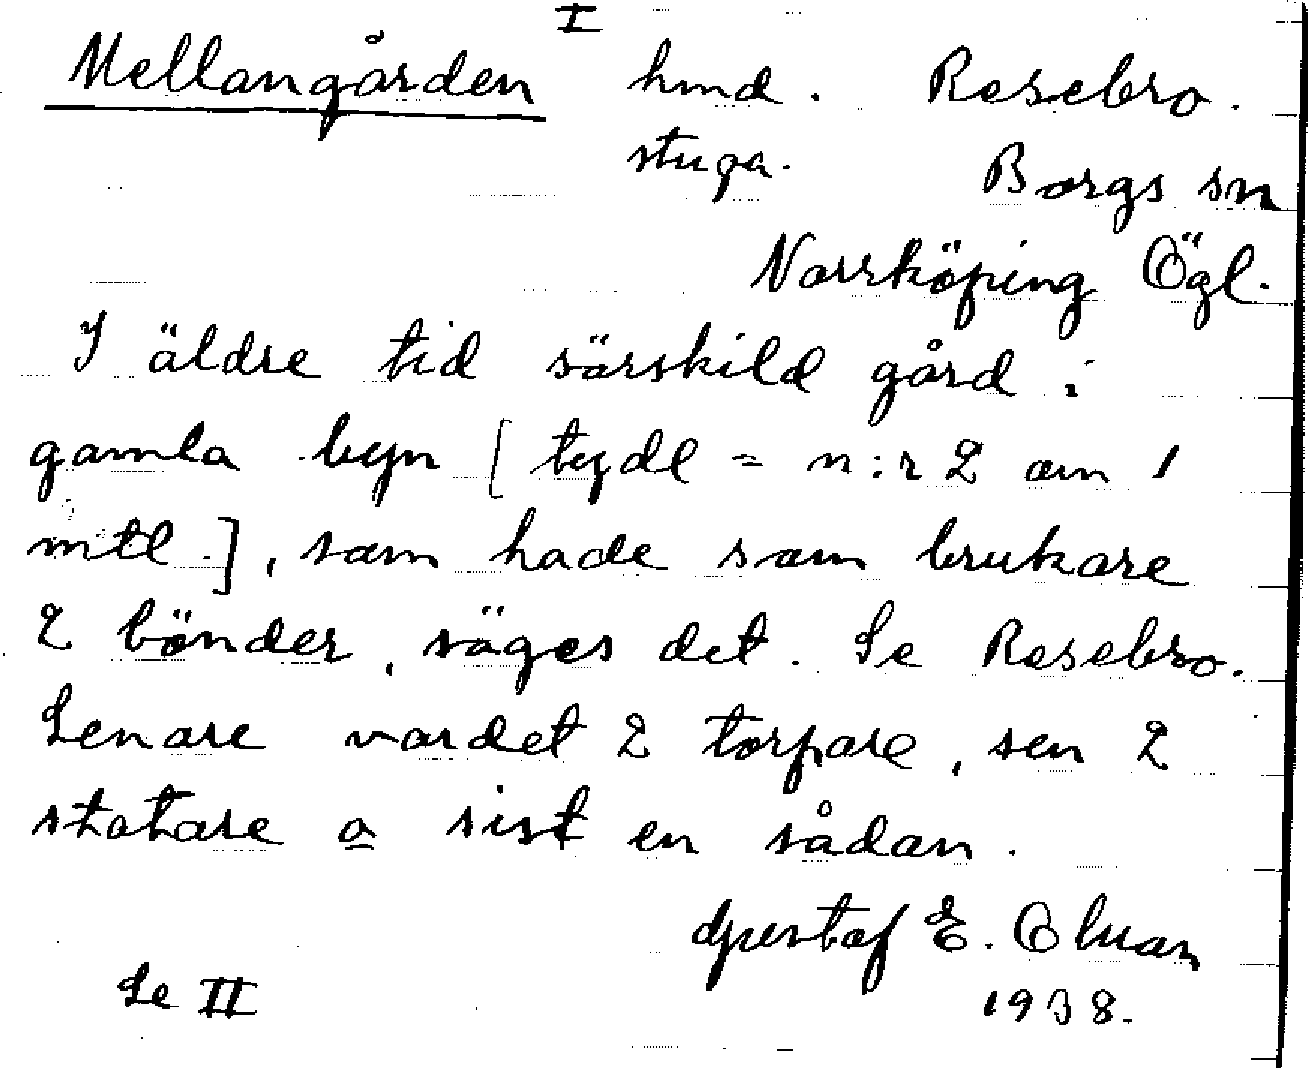 I
Mellangården hmd. Rosebro.
stuga. Borgs sn
Norrköping Ögl.
I äldre tid särskild gård i
gamla byn [tydl = n:r 2 om 1
mtl.], som hade som brukare
2 bönder, säges det. Se Rosebro.
Senare vardet 2 torpare, sen 2
statare o sist en sådan.
Gustaf E. Olsson
Se II 1938.